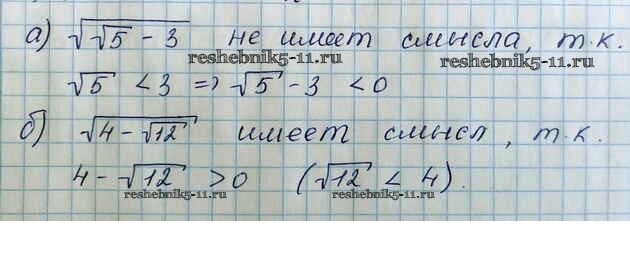 а) √(√5 - 3) не имеет смысла, т.к.
reshebnik5-11.ru
reshebnik5-11.ru
√5 < 3 => √5 - 3 < 0
б) √(4 - √12) имеет смысл, т.к.
4 - √12 > 0 (√12 < 4).
reshebnik5-11.ru
reshebnik5-11.ru